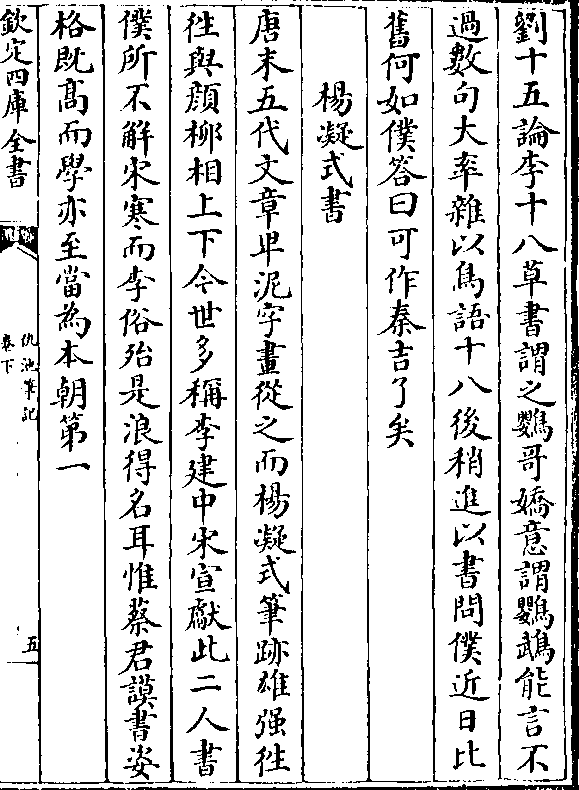 劉十五論李十八草書謂之鸚哥嬌意謂鸚鵡能言不
過數句大率雜以鳥語十八後稍進以書問僕近日比
舊何如僕答曰可作秦吉了矣
楊凝式書
唐末五代文章卑泥字畫從之而楊凝式筆跡雄强徃
徃與顔柳相上下今世多稱李建中宋宣獻此二人書
僕所不解宋寒而李俗殆是浪得名耳惟蔡君謨書姿
格既髙而學亦至當為本朝第一
欽定四庫全書
仇池筆記
卷下
五